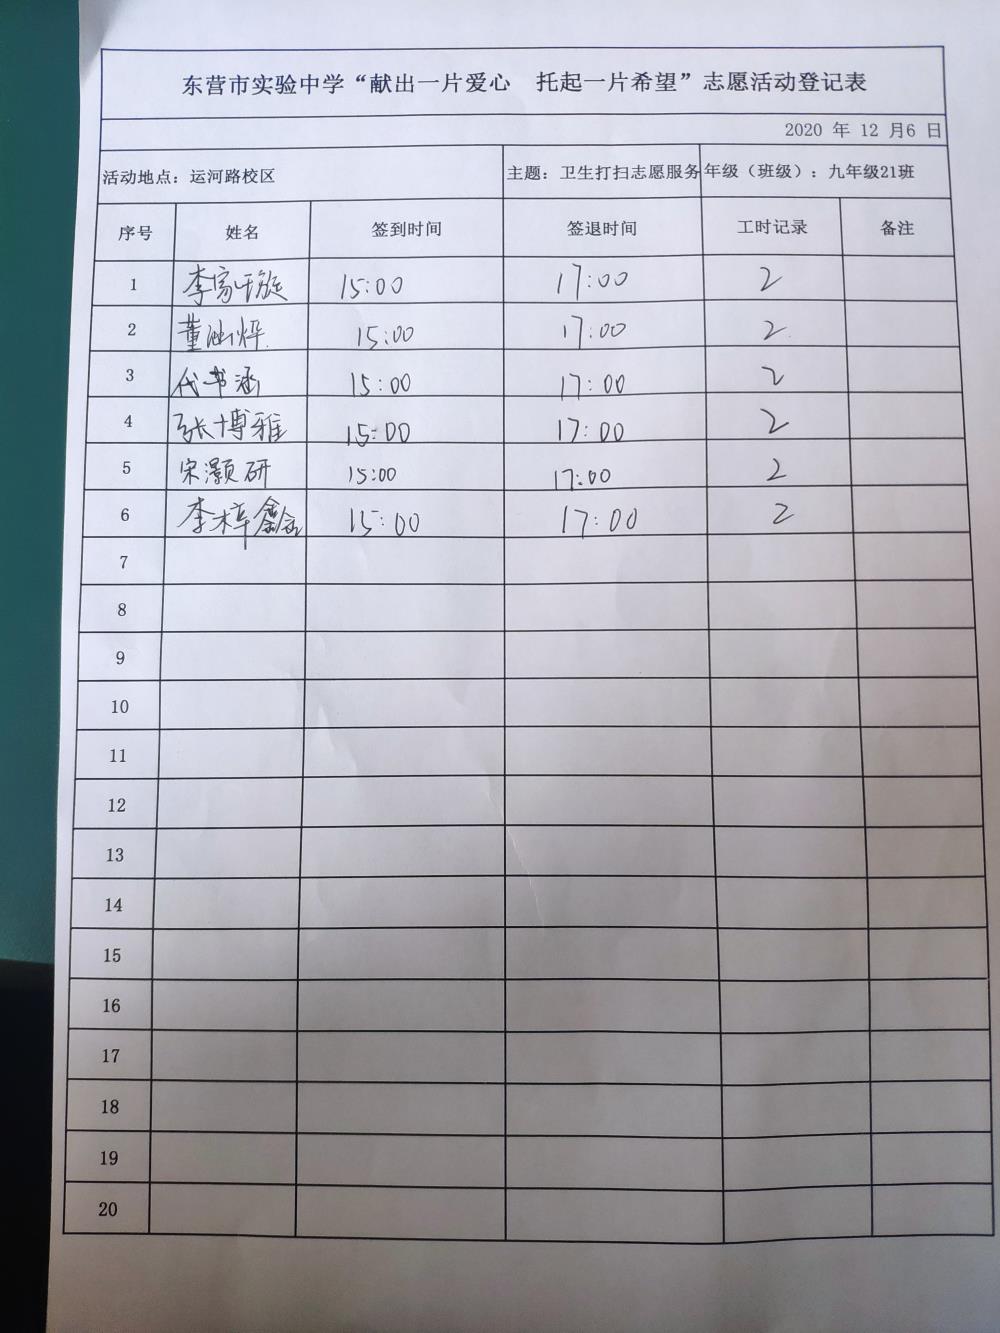 东营市实验中学“献出一片爱心 托起一片希望”志愿活动登记表
2020 年 12 月6 日
活动地点：运河路校区 主题：卫生打扫志愿服务 年级（班级）：九年级21班
序号 姓名 签到时间 签退时间 工时记录 备注
1 李家 15:00 17:00 2
2 董 15:00 17:00 2
3 代书涵 15:00 17:00 2
4 张博雅 15:00 17:00 2
5 宋灏研 15:00 17:00 2
6 李梓鑫 15:00 17:00 2
7
8
9
10
11
12
13
14
15
16
17
18
19
20